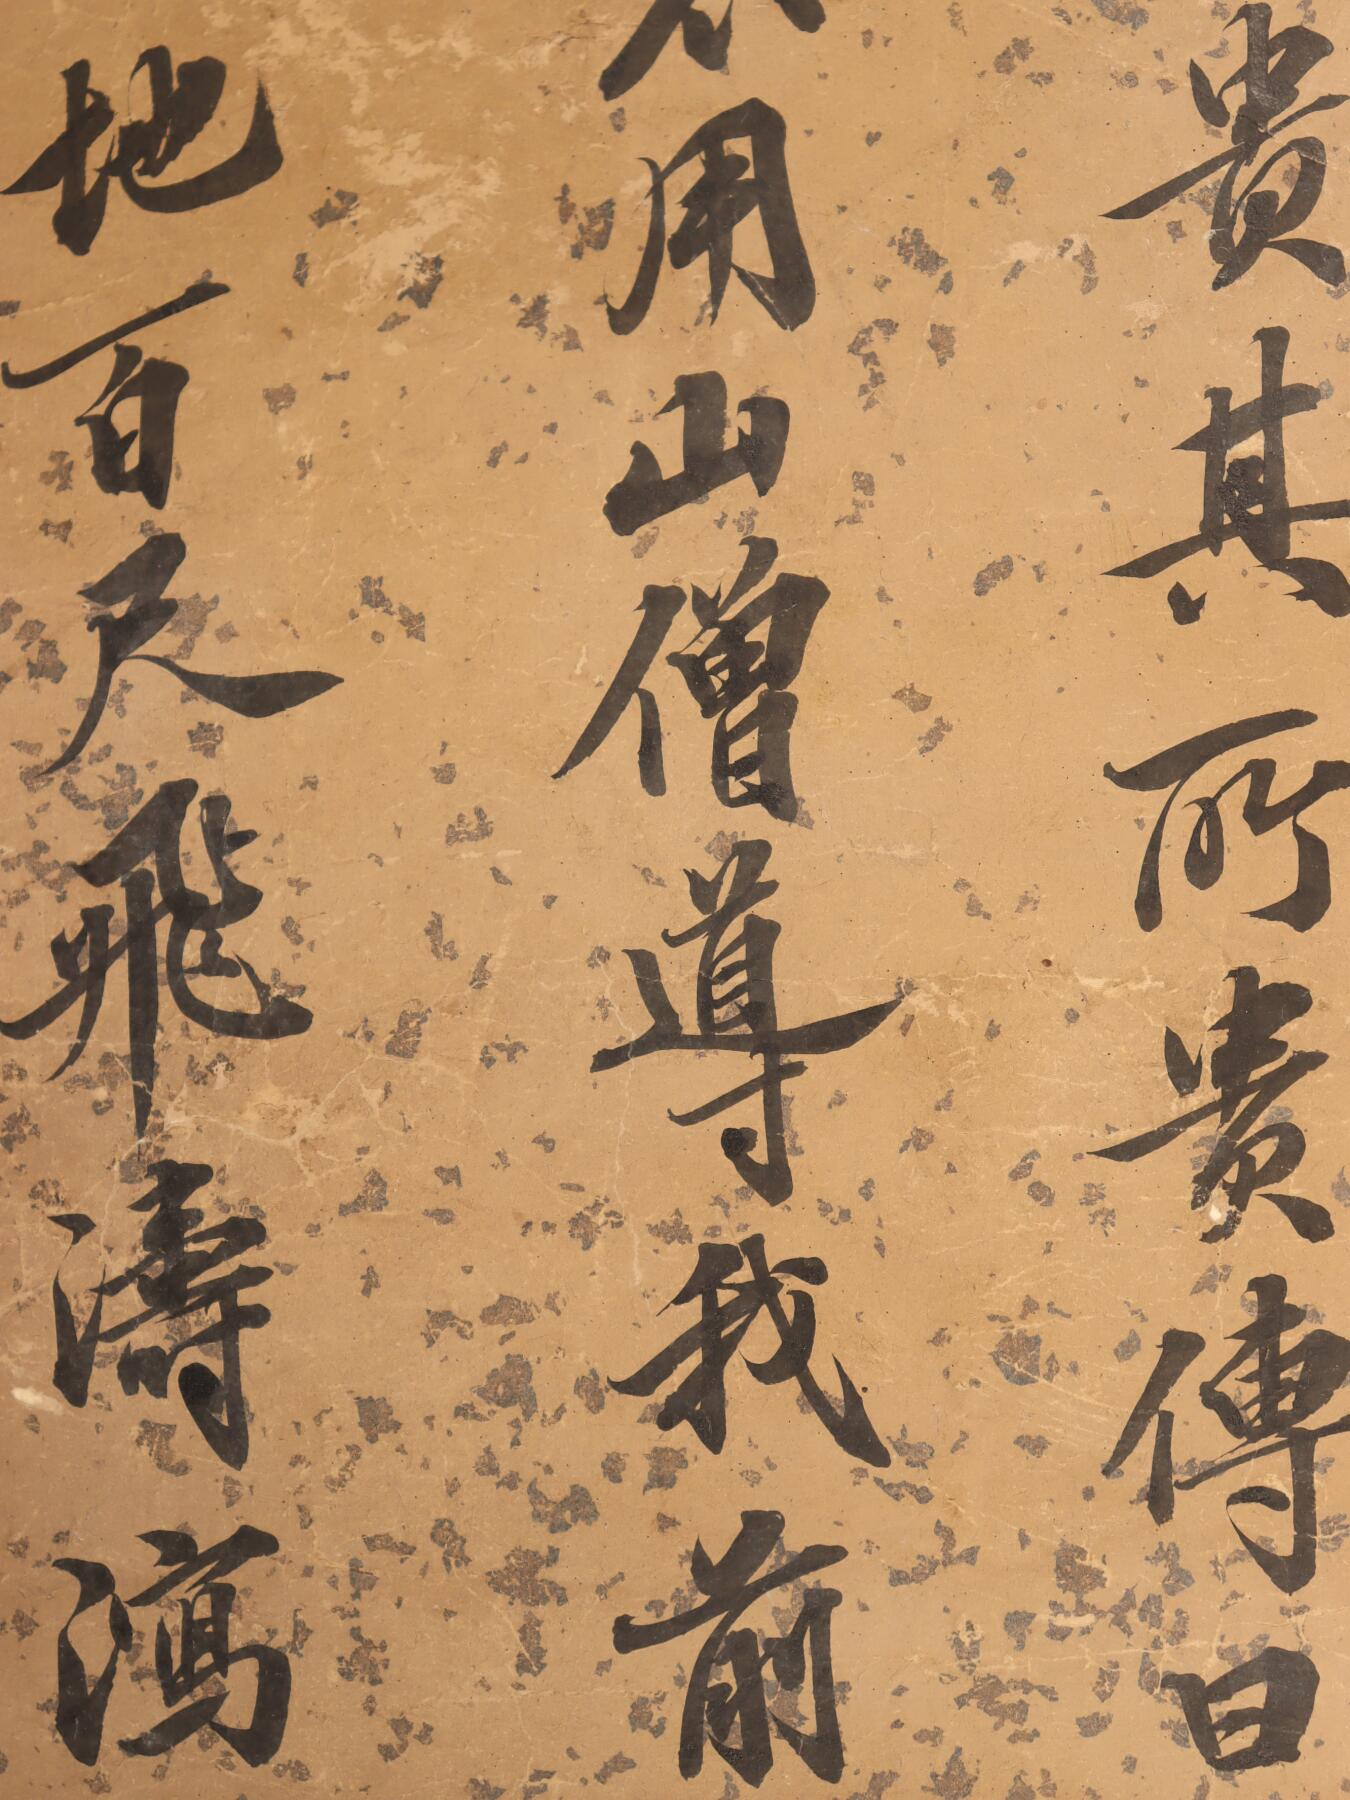 貴其所貴傳曰
用山僧導我前
地百尺飛濤瀉